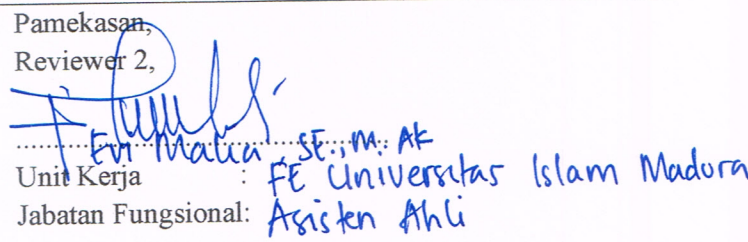 Pamekasan,
Reviewer 2,
Evi Malia, SE., M. AK
Unit Kerja : FE Universitas Islam Madura
Jabatan Fungsional: Asisten Ahli